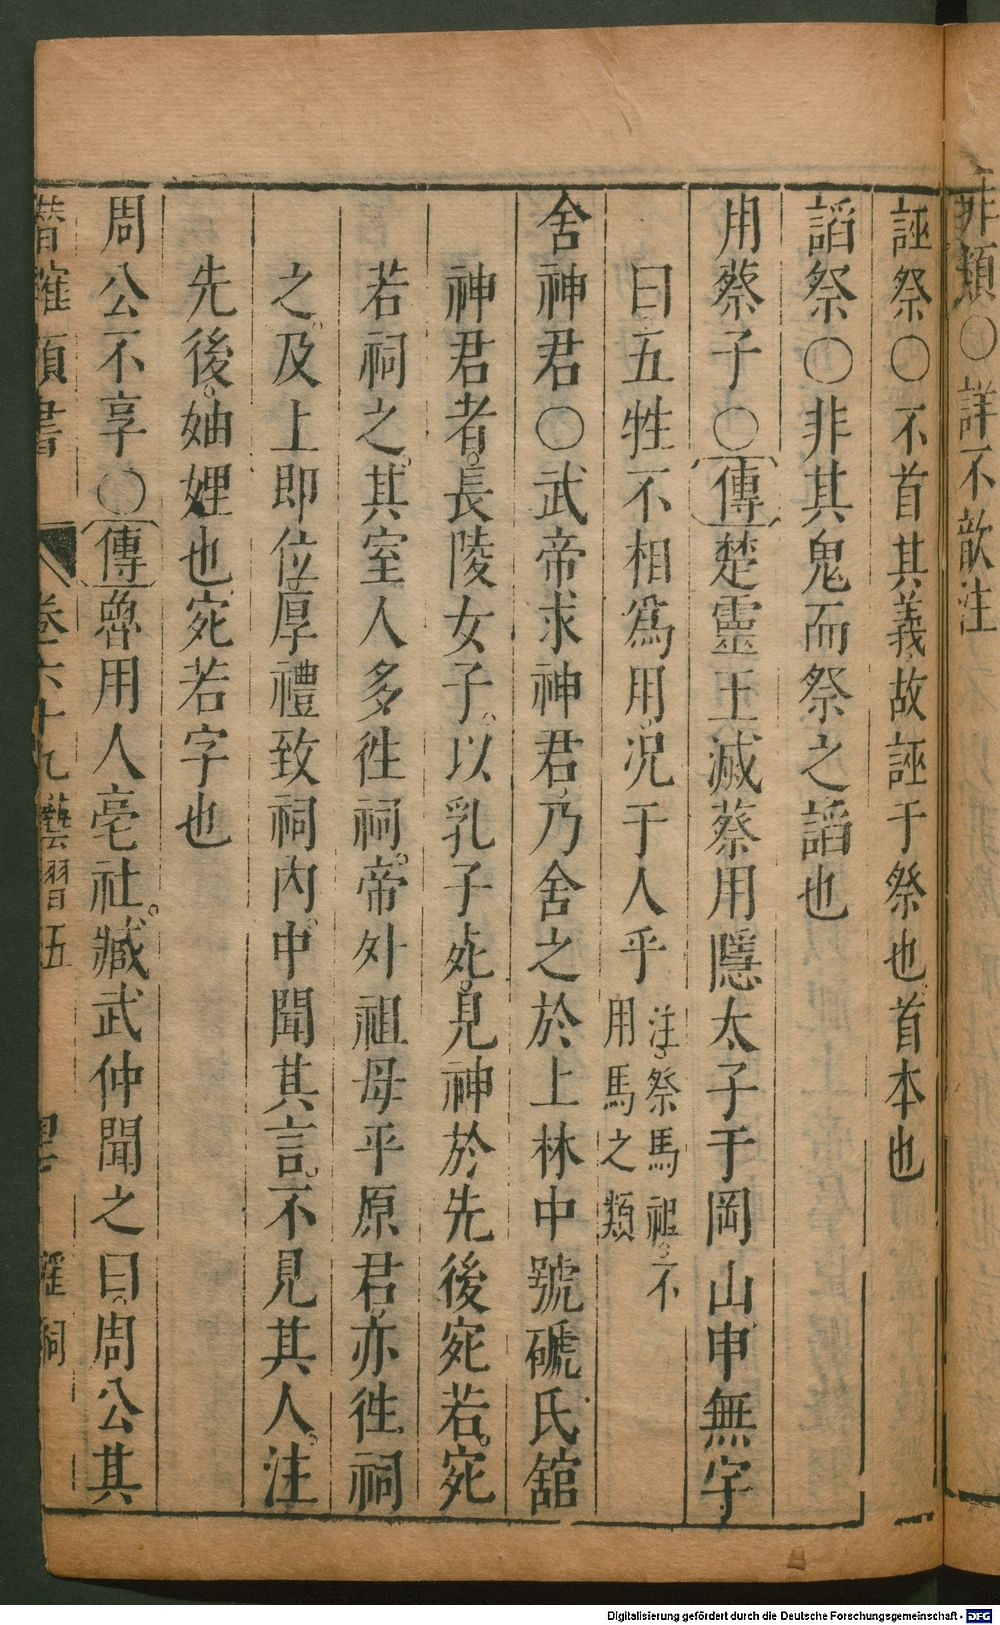 非類○詳不歆注
誣祭○不首其義故誣于祭也首本也
謟祭○非其鬼而祭之謟也
用蔡子○傳楚靈王滅蔡用隱太子于岡山申無宇
曰五牲不相爲用况于人乎注祭馬祖不
用馬之類
舍神君○武帝求神君乃舍之於上林中號磃氏舘
神君者長陵女子以乳子死見神於先後宛若宛
若祠之其室人多徃祠帝外祖母平原君亦徃祠
之及上即位厚禮致祠内中聞其言不見其人注
先後妯娌也宛若字也
周公不享○傳魯用人亳社臧武仲聞之曰周公其
潛確類書 卷六十九藝習五 淫祠
Digitalisierung gefördert durch die Deutsche Forschungsgemeinschaft - DFG